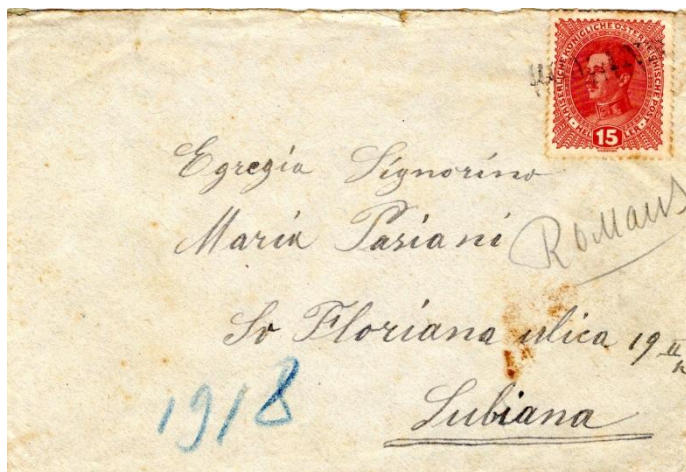 KAISERLICHE KÖNIGLICHE ÖSTERREICHISCHE POST
15
Egregia Signorina
Maria Pasiani
Romans
Sv Floriana ulica 19 II
1918
Lubiana